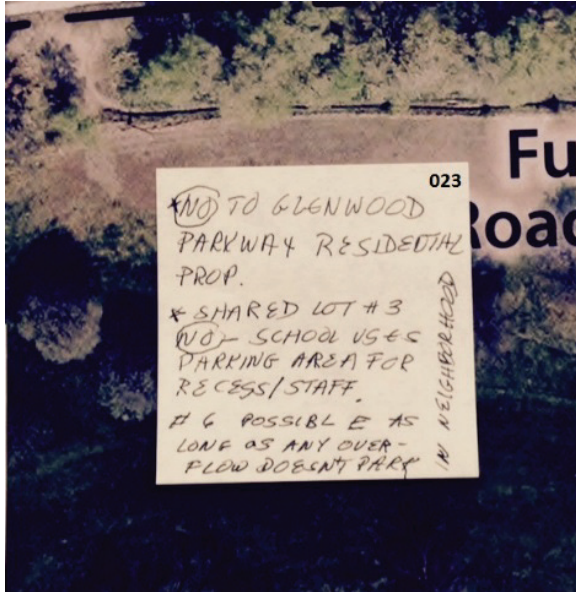 023
Fu
Road
*NO TO GLENWOOD
PARKWAY RESIDENTIAL
PROP.
* SHARED LOT #3
NO - SCHOOL USES
PARKING AREA FOR
RECESS/STAFF.
# 6 POSSIBLE AS
LONG AS ANY OVER-
FLOW DOESNT PARK
IN NEIGHBORHOOD